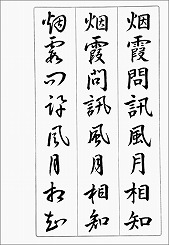 烟霞問訊風月相知
烟霞問訊風月相知
烟霞问讯风月相知